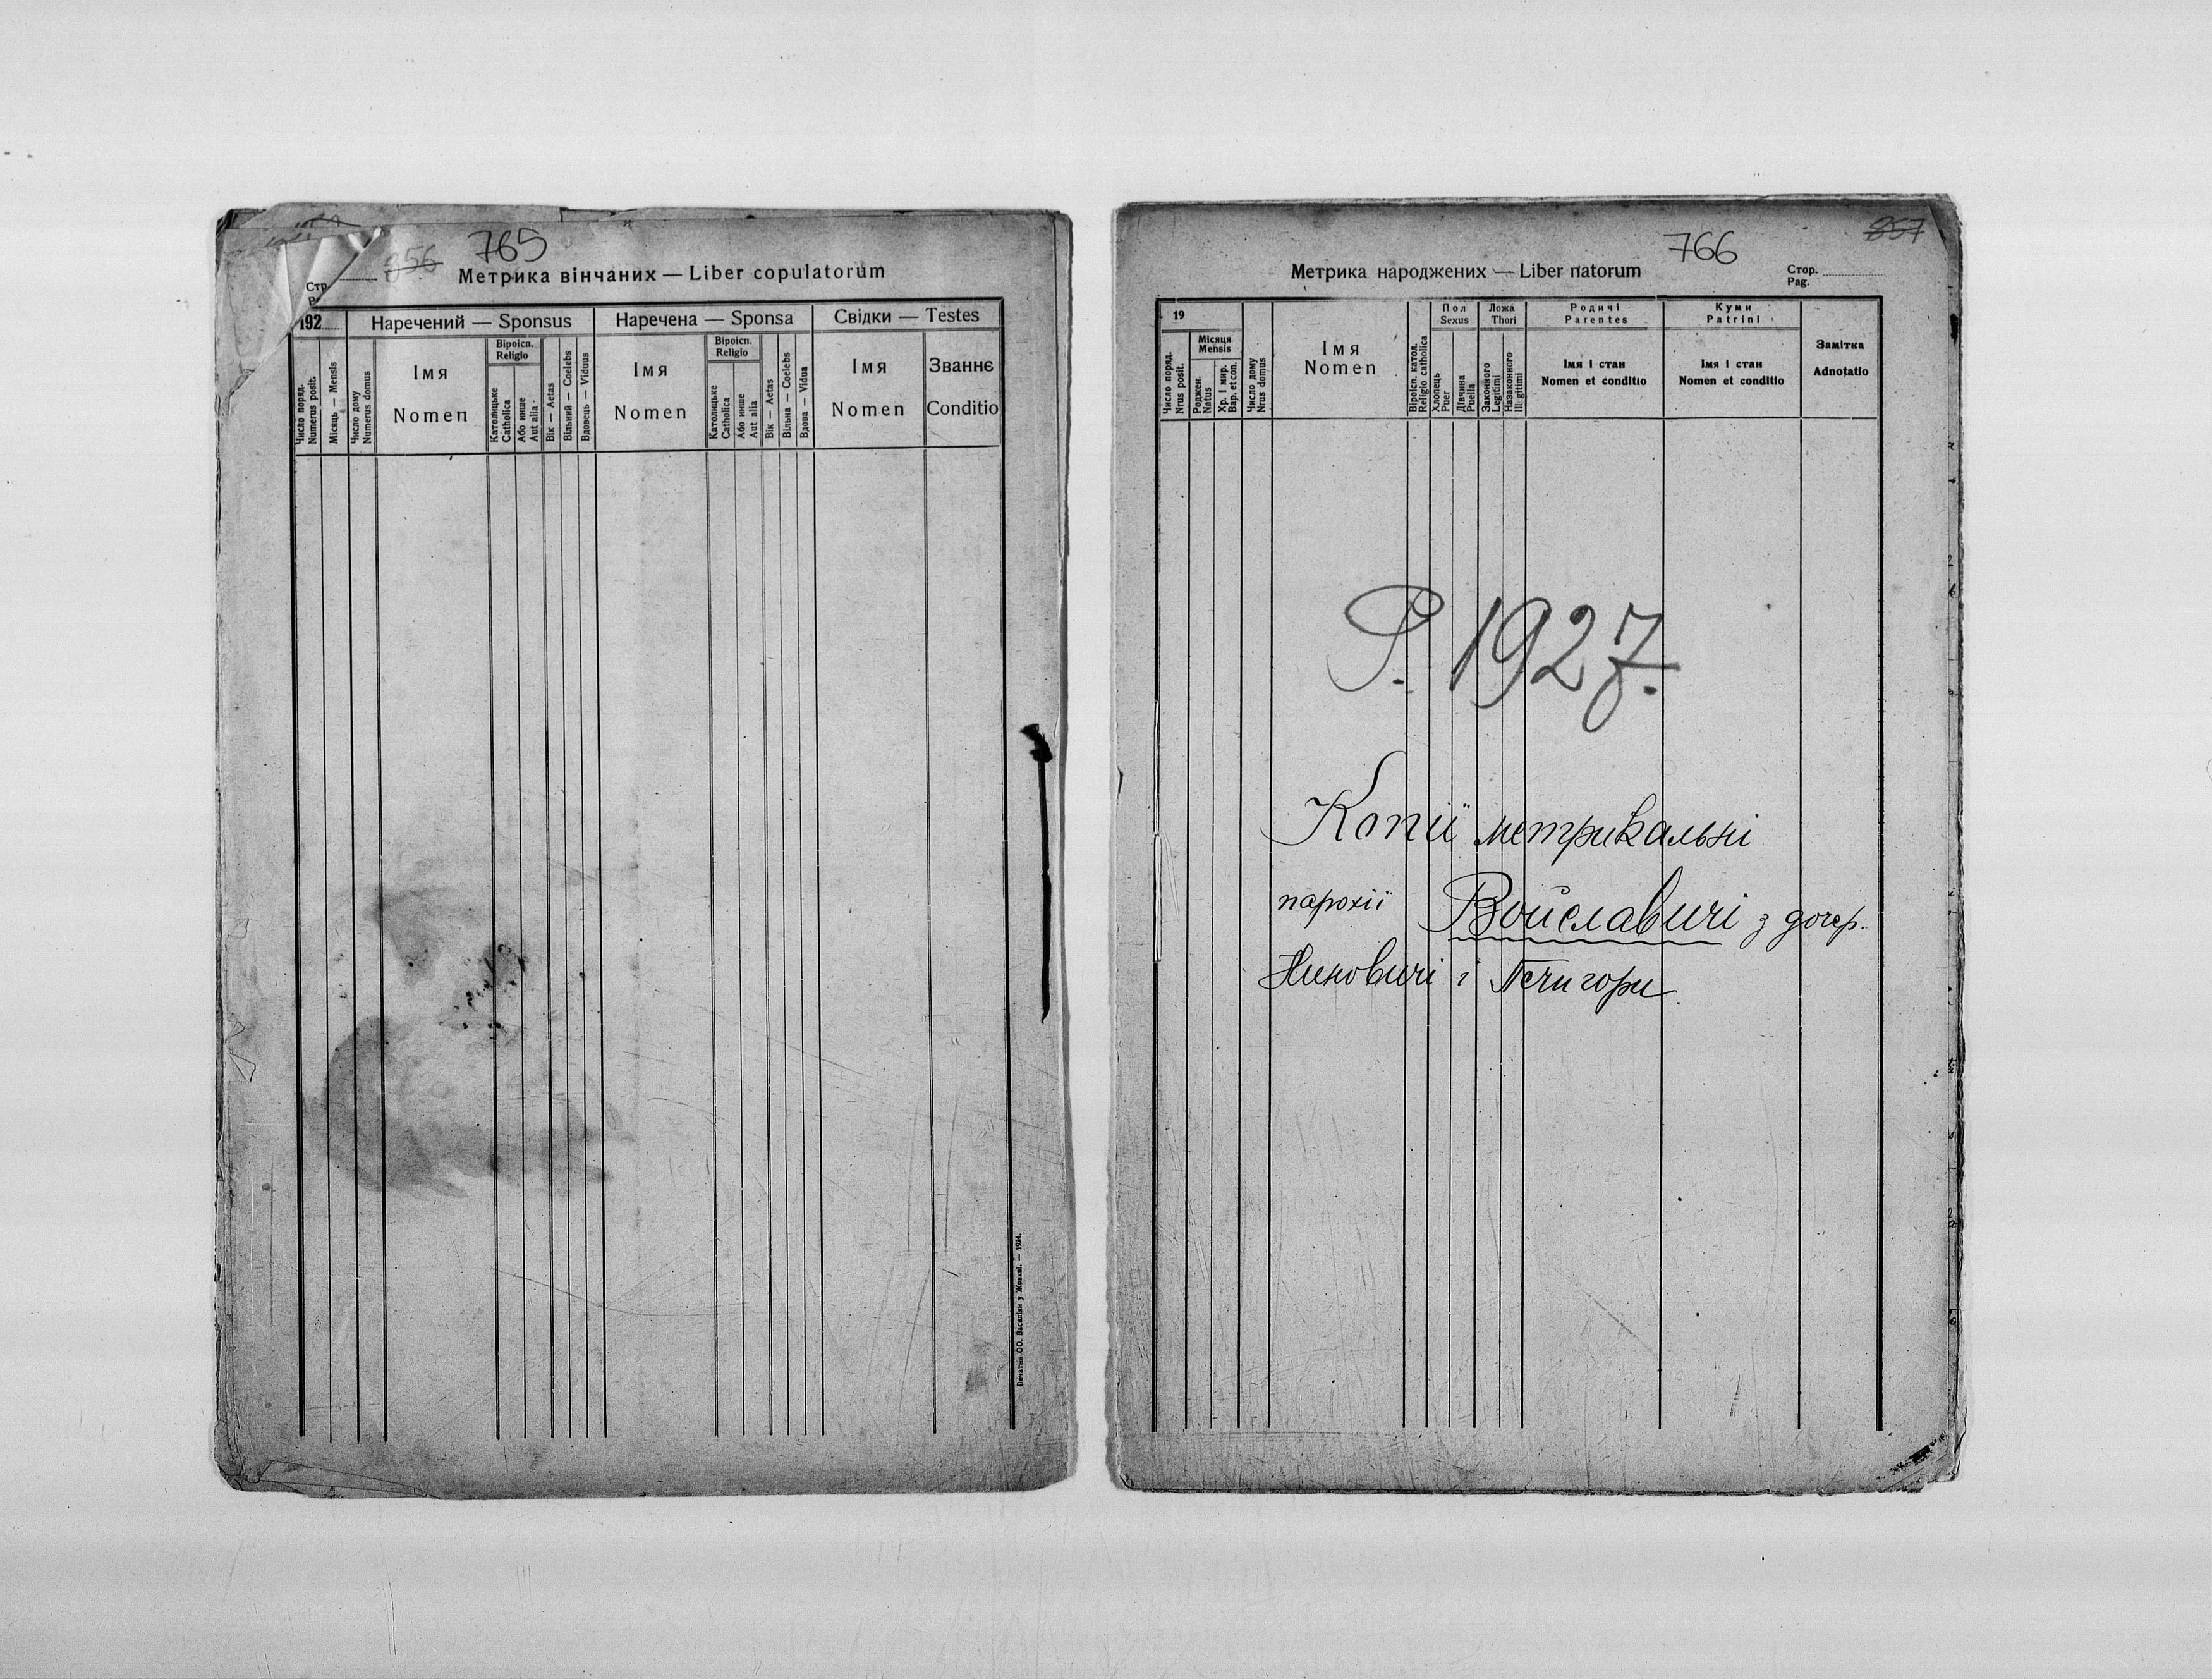 356 765
Метрика вінчаних — Liber copulatorum
Стр.
192
Наречений — Sponsus
Наречена — Sponsa
Свідки — Testes
Число поряд.
Numerus posit.
Місяць — Mensis
Число дому
Numerus domus
Імя
Nomen
Віроісп.
Religio
Католицьке
Catholica
Або инше
Aut alia
Вік — Aetas
Вільний — Coelebs
Вдовець — Viduus
Імя
Nomen
Віроісп.
Religio
Католицьке
Catholica
Або инше
Aut alia
Вік — Aetas
Вільна — Coelebs
Вдова — Vidua
Імя
Nomen
Званнє
Conditio
Печатня ОО. Василіян у Жовкві. — 1924.
766
857
Метрика народжених — Liber natorum
Стор.
Pag.
19
Число поряд.
Nrus posit.
Місяця
Mensis
Роджен.
Natus
Хр. і мир.
Bap. et con.
Число дому
Nrus domus
Імя
Nomen
Віроісп. катол.
Religio catholica
Пол
Sexus
Хлопець
Puer
Дівчина
Puella
Ложа
Thori
Законного
Legitimi
Незаконного
Illegitimi
Родичі
Parentes
Імя і стан
Nomen et conditio
Куми
Patrini
Імя і стан
Nomen et conditio
Замітка
Adnotatio
Р. 1927.
Копії метрикальні
парохії Войславичі з дочер.
Ниновичі і Печигори.